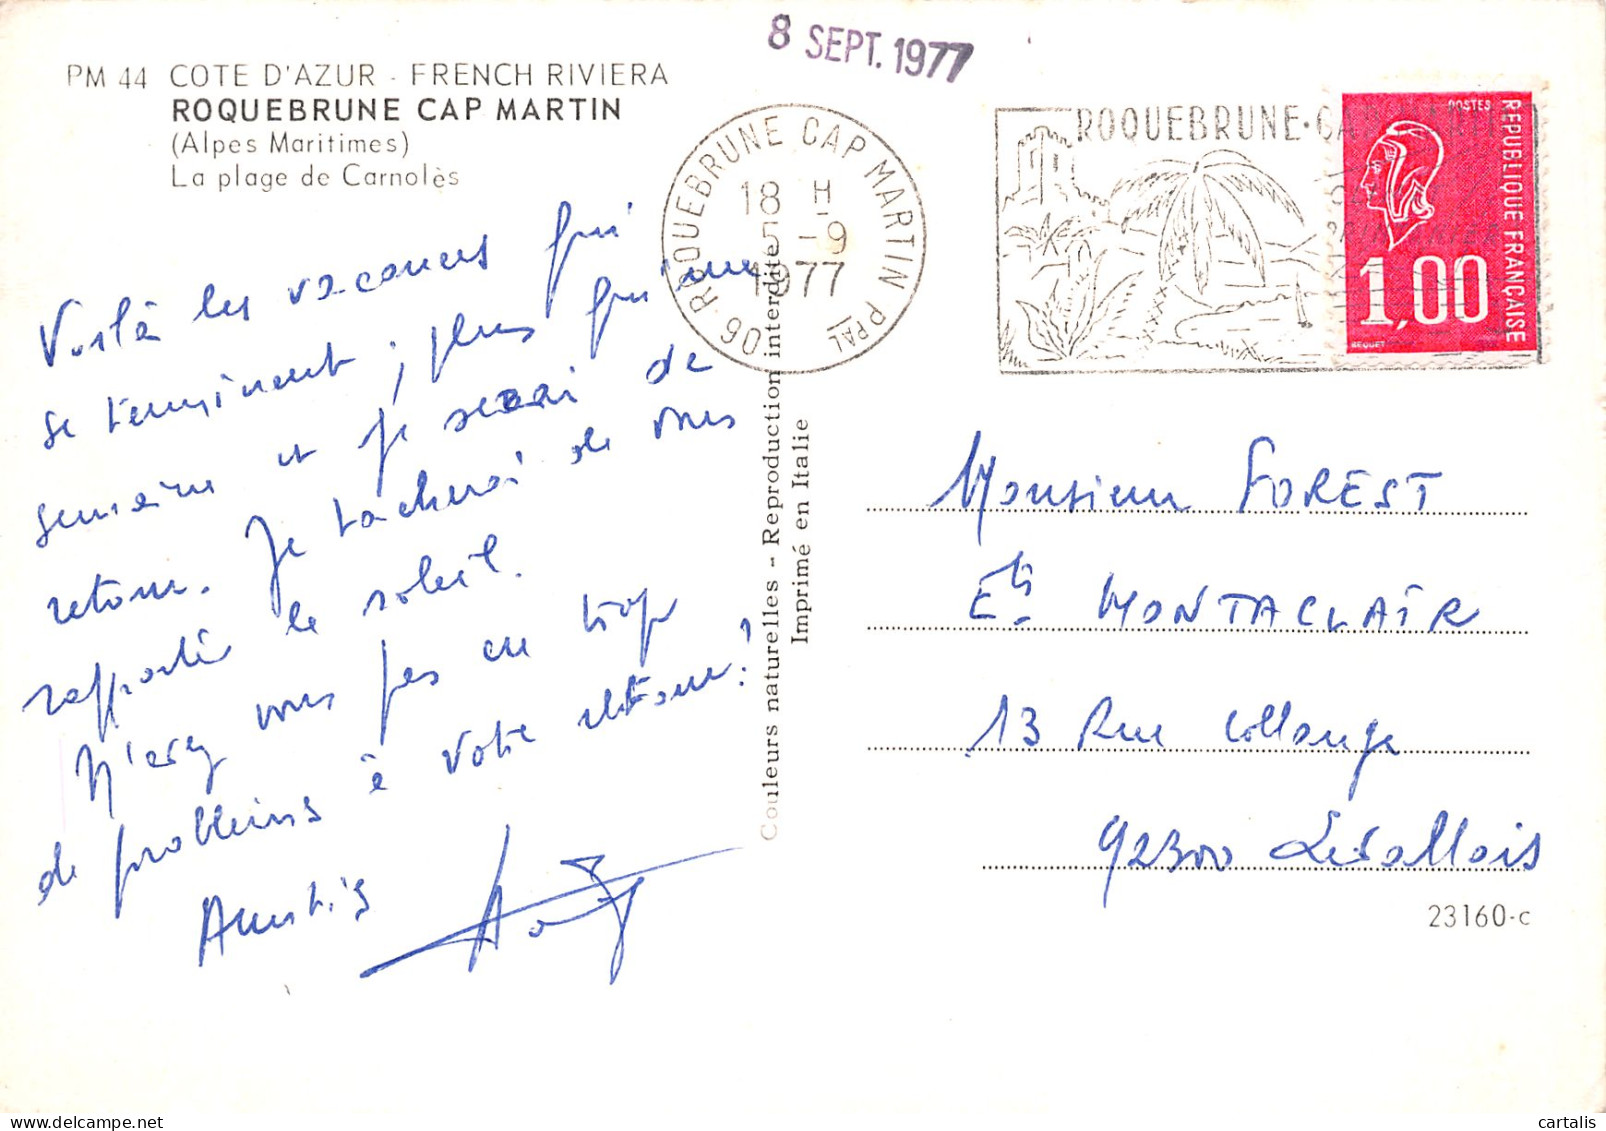 8 SEPT. 1977
PM 44 COTE D'AZUR - FRENCH RIVIERA
ROQUEBRUNE CAP MARTIN
(Alpes Maritimes)
La plage de Carnolès
06 ROQUEBRUNE CAP MARTIN PPAL
18 H
5 -9
1977
ROQUEBRUNE-CAP
POSTES
REPUBLIQUE FRANÇAISE
1,00
BEQUET
Voilà les vacances qui
se terminent ; plus qu'une
semaine et je serai de
retour. Je tacherai de vous
rapporter le soleil.
N'ayez vous pas eu trop
de problèmes à votre retour !
Amitiés
Couleurs naturelles - Reproduction interdite
Imprimé en Italie
Monsieur FOREST
Ets MONTACLAIR
13 Rue Collange
92300 Levallois
23160-c
cartalis